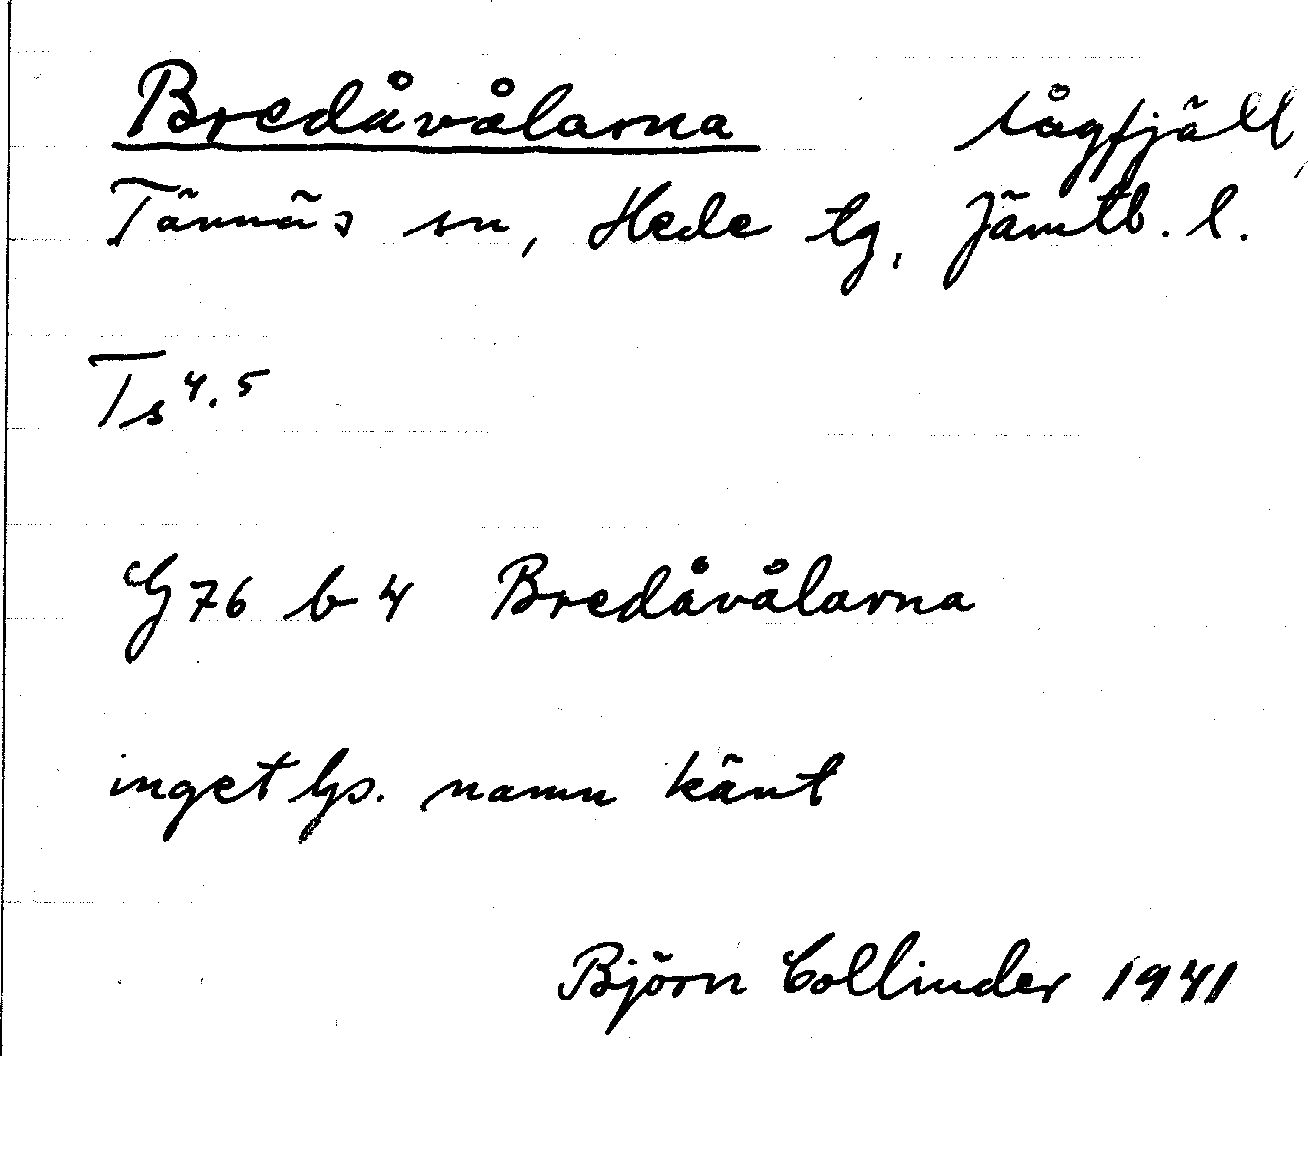 Bredåvålarna lågfjäll,
Tännäs sn, Hede tg, Jämtb. l.
Ts 4.5
G 76 b 4 Bredåvålarna
inget lp. namn känt
Björn Collinder 1941